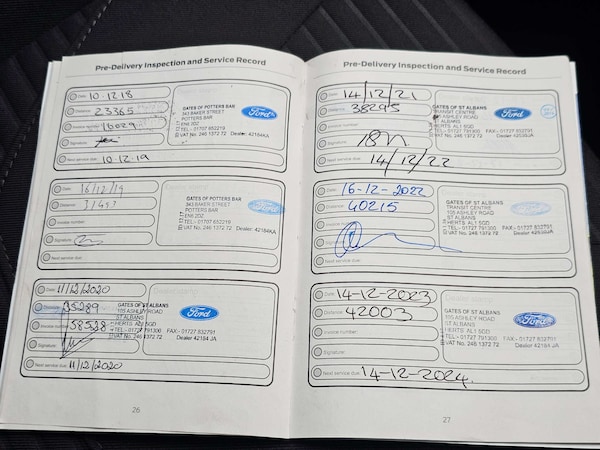 Pre-Delivery Inspection and Service Record
Date: 10.12.18
Distance: 23365
Invoice number: 16029
Signature:
Next service due: 10.12.19
GATES OF POTTERS BAR
343 BAKER STREET
POTTERS BAR
EN6 2DZ
TEL:- 01707 652219
VAT No. 246 1372 72 Dealer: 42184KA
Ford
Date: 16/12/19
Distance: 31493
Invoice number:
Signature:
Next service due:
GATES OF POTTERS BAR
343 BAKER STREET
POTTERS BAR
EN6 2DZ
TEL:- 01707 652219
VAT No. 246 1372 72 Dealer: 42184KA
Ford
Date: 11/12/2020
Distance: 35289
Invoice number: 58528
Signature:
Next service due: 11/12/2020
GATES OF ST ALBANS
105 ASHLEY ROAD
ST ALBANS
HERTS AL1 5GD
TEL:- 01727 791300 FAX:- 01727 832791
VAT No. 246 1372 72 Dealer 42184 JA
Ford
26
Pre-Delivery Inspection and Service Record
Date: 14/12/21
Distance: 38295
Invoice number:
Signature:
Next service due: 14/12/22
GATES OF ST ALBANS
TRANSIT CENTRE
105 ASHLEY ROAD
ST ALBANS
HERTS AL1 5GD
TEL:- 01727 791300 FAX:- 01727 832791
VAT No. 246 1372 72
Ford
Date: 16-12-2022
Distance: 40215
Invoice number:
Signature:
Next service due:
GATES OF ST ALBANS
TRANSIT CENTRE
105 ASHLEY ROAD
ST ALBANS
HERTS AL1 5GD
TEL:- 01727 791300 FAX:- 01727 832791
VAT No. 246 1372 72
Ford
Date: 14-12-2023
Distance: 42003
Invoice number:
Signature:
Next service due: 14-12-2024.
GATES OF ST ALBANS
105 ASHLEY ROAD
ST ALBANS
HERTS AL1 5GD
TEL:- 01727 791300 FAX:- 01727 832791
VAT No. 246 1372 72 Dealer 42184 JA
Ford
27